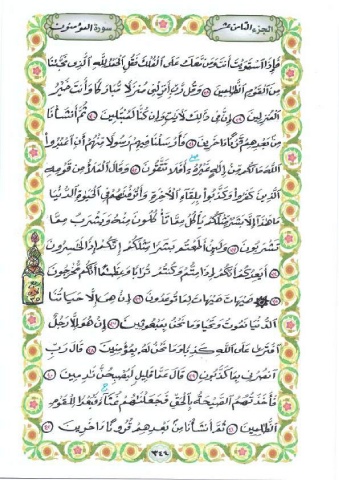 الجزء الثامن عشر سورة المؤمنون
فإذا استويت أنت ومن معك على الفلك فقل الحمد لله الذي نجىنا
من القوم الظلمين ٢٨ وقل رب أنزلني منزلا مباركا وأنت خير
المنزلين ٢٩ إن في ذلك لآيت وإن كنا لمبتلين ٣٠ ثم أنشأنا
من بعدهم قرنا ءاخرين ٣١ فأرسلنا فيهم رسولا منهم أن اعبدوا
الله ما لكم من إله غيره أفلا تتقون ٣٢ وقال الملأ من قومه
الذين كفروا وكذبوا بلقاء الآخرة وأترفنهم في الحيوة الدنيا
ما هذا إلا بشر مثلكم يأكل مما تأكلون منه ويشرب مما
تشربون ٣٣ ولئن أطعتم بشرا مثلكم إنكم إذا لخسرون
٣٤ أيعدكم أنكم إذا متم وكنتم ترابا وعظما أنكم مخرجون
٣٥ هيهات هيهات لما توعدون ٣٦ إن هي إلا حياتنا
الدنيا نموت ونحيا وما نحن بمبعوثين ٣٧ إن هو إلا رجل
افترى على الله كذبا وما نحن له بمؤمنين ٣٨ قال رب
انصرني بما كذبون ٣٩ قال عما قليل ليصبحن ندمين ٤٠
فأخذتهم الصيحة بالحق فجعلنهم غثاء فبعدا للقوم
الظلمين ٤١ ثم أنشأنا من بعدهم قرونا ءاخرين ٤٢
٣٤٤